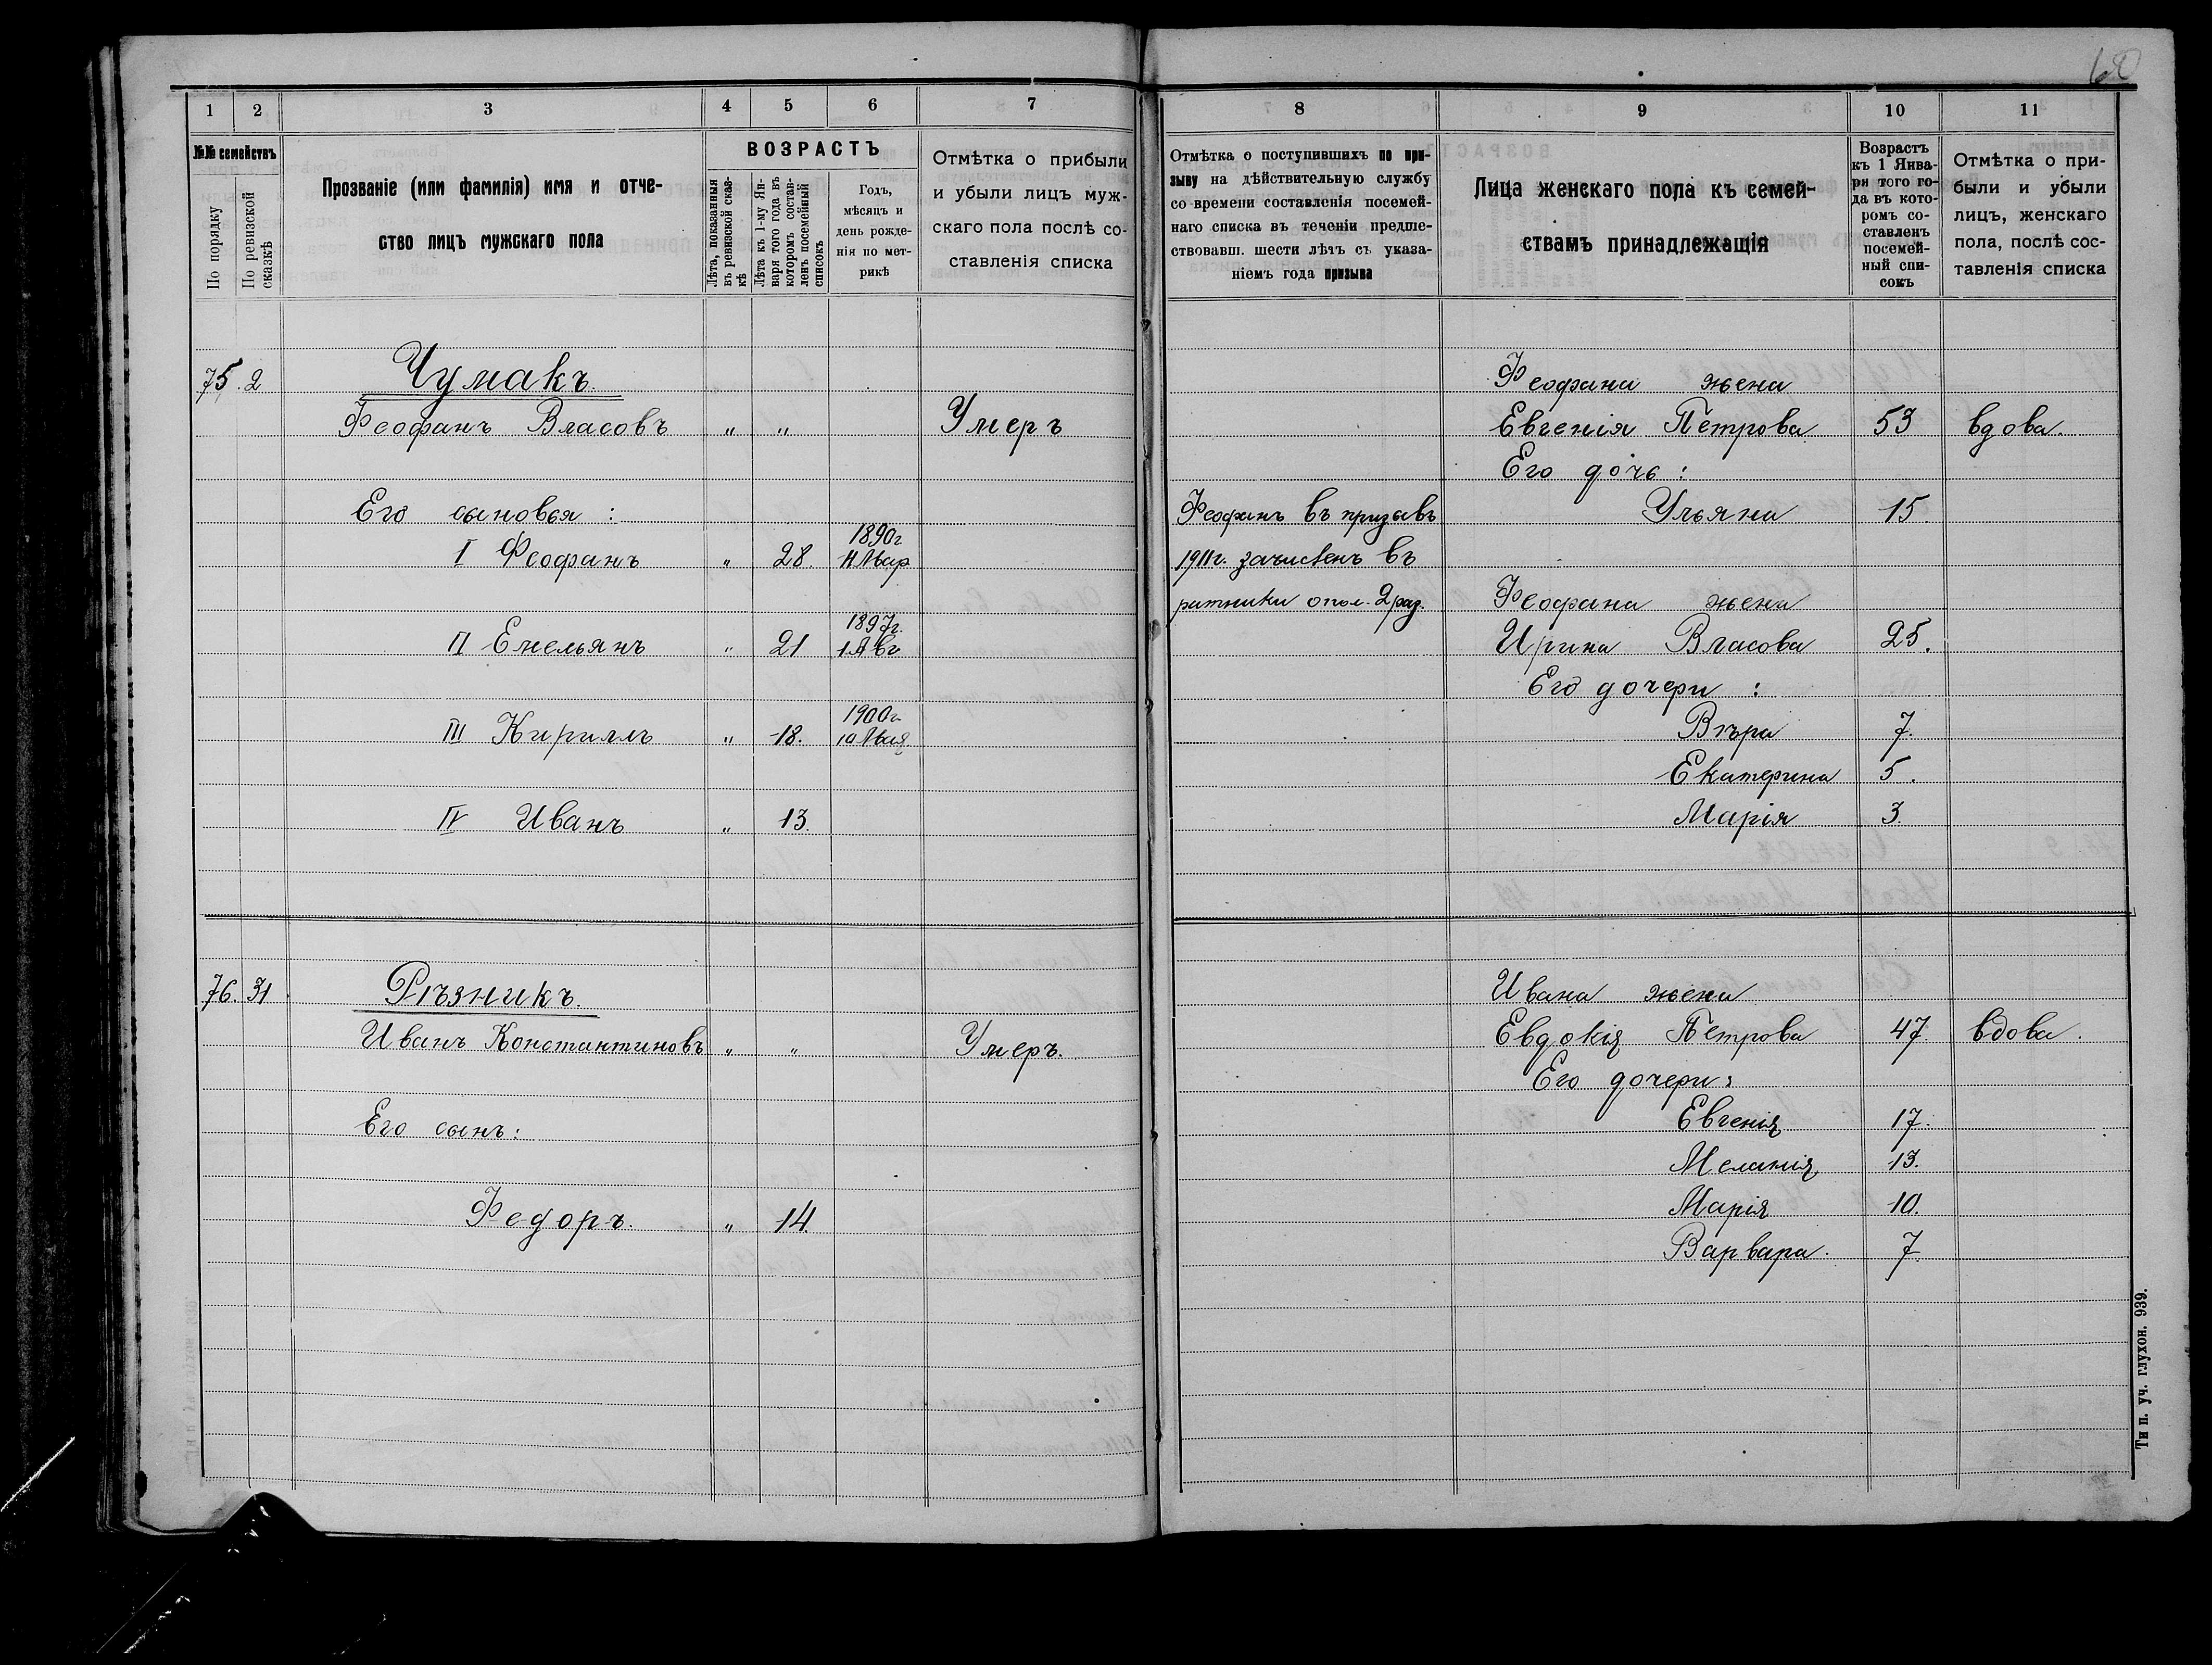 60
1 2 3 4 5 6 7
№№ семействъ
По порядку
По ревизской сказкѣ
Прозваніе (или фамилія) имя и отче-
ство лицъ мужскаго пола
ВОЗРАСТЪ
Лѣта, показанныя
въ ревизской сказ-
кѣ
Лѣта къ 1-му Ян-
варя того года въ
которомъ состав-
ленъ посемейный
списокъ
Годъ,
мѣсяцъ и
день рожде-
нія по мет-
рикѣ
Отмѣтка о прибыли
и убыли лицъ муж-
скаго пола послѣ со-
ставленія списка
75. 2 Чумакъ.
Феофанъ Власовъ " " Умеръ
Его сыновья :
1890г
I Феофанъ " 28. 11 Мар
1897г.
II Емельянъ " 21 1 Авг
1900г
III Кириллъ " 18. 10 Мая
IV Иванъ " 13.
76. 31 Рѣзникъ.
Иванъ Константиновъ " " Умеръ.
Его сынъ:
Федоръ. " 14.
8 9 10 11
Отмѣтка о поступившихъ по при-
зыву на дѣйствительную службу
со времени составленія посемей-
наго списка въ теченіи предше-
ствовавш. шести лѣтъ съ указа-
ніемъ года призыва
Лица женскаго пола къ семей-
ствамъ принадлежащія
Возрастъ
къ 1 Янва-
ря того го-
да въ кото-
ромъ со-
ставленъ
посемей-
ный спи-
сокъ
Отмѣтка о при-
были и убыли
лицъ, женскаго
пола, послѣ сос-
тавленія списка
Феофана жена
Евгенія Петрова 53 вдова.
Его дочь :
Феофанъ въ призывъ Ульяна 15
1911г. зачисленъ въ
ратники опол. 2 раз. Феофана жена
Ирина Власова 25.
Его дочери :
Вѣра 7.
Екатерина 5.
Марія 3.
Ивана жена
Евдокія Петрова 47 вдова.
Его дочери:
Евгенія 17.
Меланія 13.
Марія 10.
Варвара. 7.
Ти п. уч. глухон. 939.